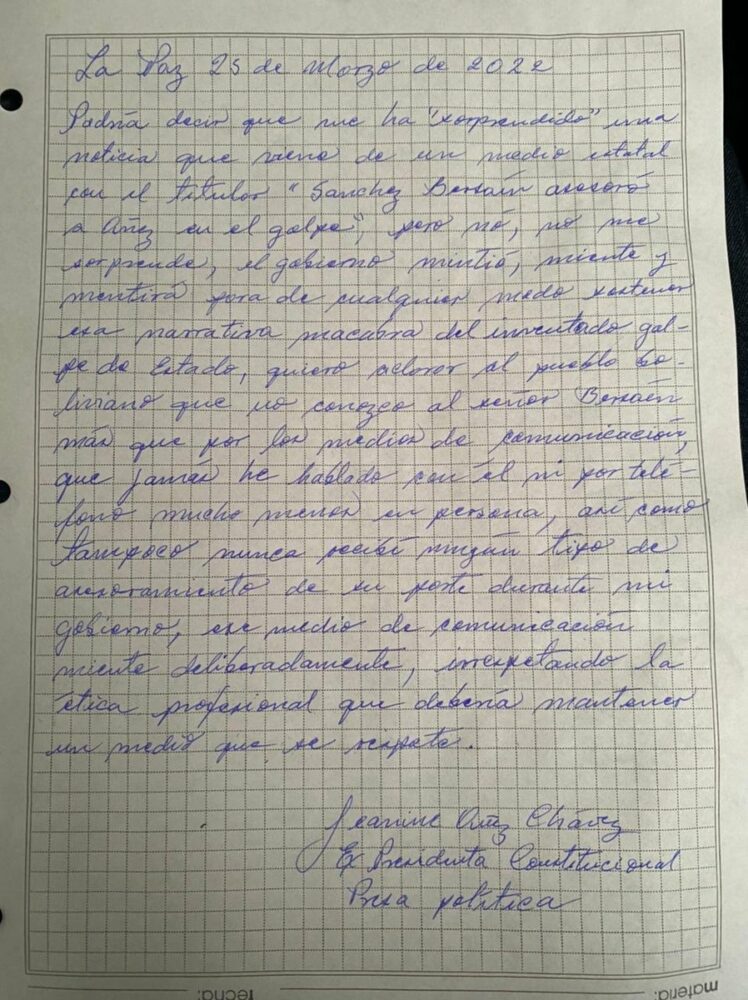 La Paz 25 de Marzo de 2022
Podría decir que me ha "sorprendido" una
noticia que viene de un medio estatal
con el titular "Sanchez Berzaín asesoró
a Añez en el golpe", pero nó, no me
sorprende, el gobierno mintió, miente y
mentirá para de cualquier modo sostener
esa narrativa macabra del inventado gol-
pe de Estado, quiero aclarar al pueblo bo-
liviano que no conozco al señor Berzaín
más que por los medios de comunicación,
que jamás he hablado con él ni por telé-
fono mucho menos en persona, así como
tampoco nunca recibí ningún tipo de
asesoramiento de su parte durante mi
gobierno, ese medio de comunicación
miente deliberadamente, irrespetando la
ética profesional que debería mantener
un medio que se respete.
Jeanine Añez Chávez
Ex Presidenta Constitucional
Presa política
fecha:
materia: